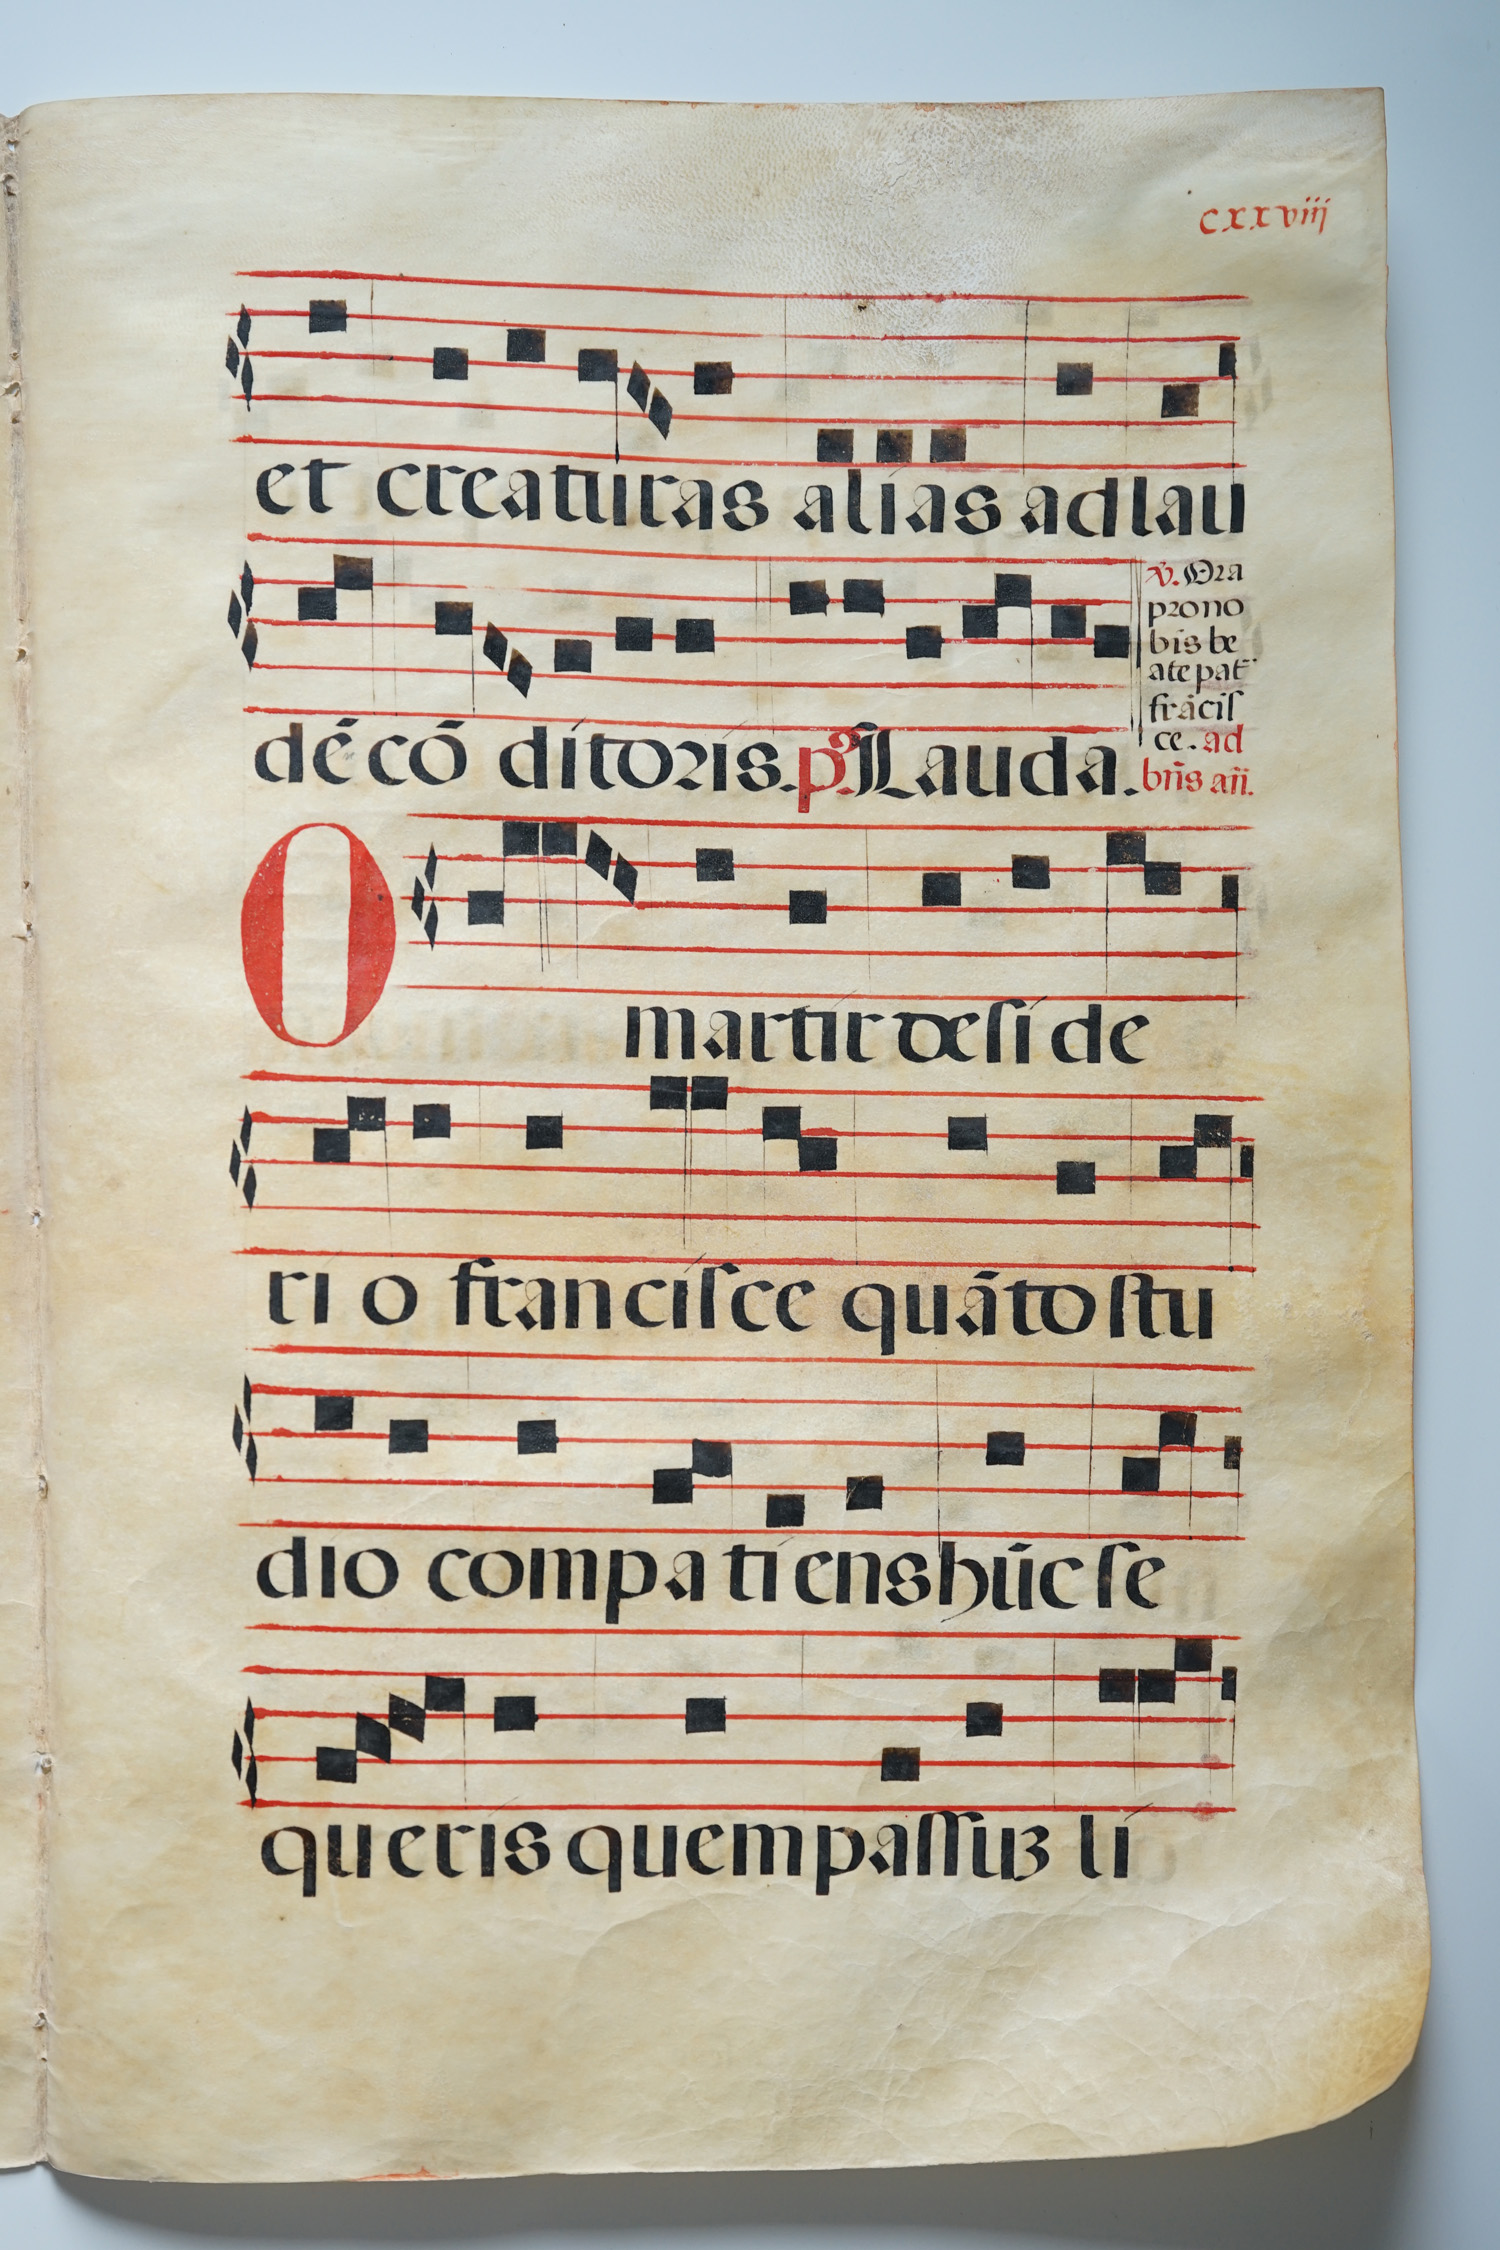 cxxviij
et creaturas alias ad lau
dē cō ditoris. p̄. Lauda.
℣. Ora
pro no
bis be
ate pat̄
frācis
ce. ad
bn̄s an̄.
O martir desi de
ri o francisce quāto stu
dio compatiens hūc se
queris quem passuʒ li